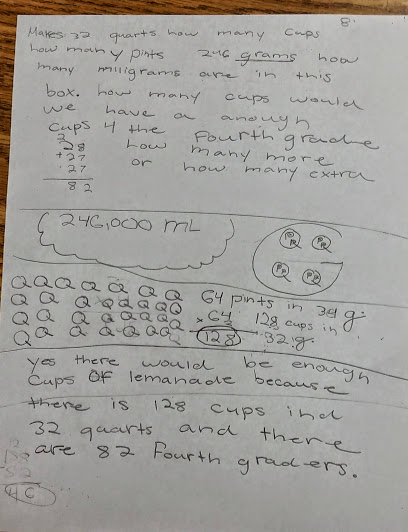 8.
Makes 32 quarts how many cups
how many pints 246 grams how
many miligrams are in this
box. how many cups would
we have a anough
cups 4 the fourth grade
2
28 how many more
+27 or how many extra
27
82
246,000 mL
P P P P
Q Q Q Q Q Q Q
Q Q Q Q Q Q Q 64 pints in
Q Q Q Q Q Q Q × 64 128 cups in
Q Q Q Q Q Q 128 32 g.
yes there would be enough
cups OF lemanade because
there is 128 cups ind
32 quarts and there
are 82 Fourth graders.
46